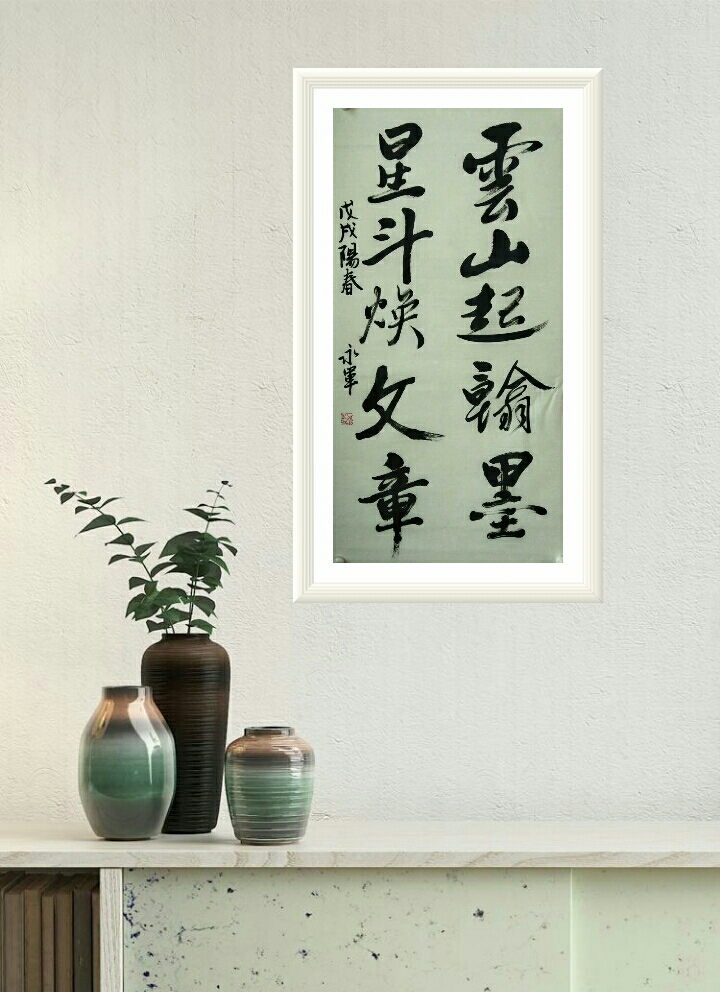 雲山起翰墨
星斗焕文章
戊戌陽春
永軍